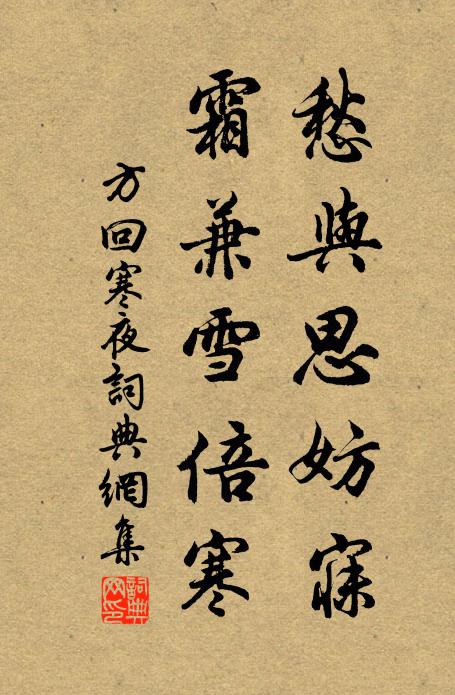 愁與思妨寐
霜兼雪倍寒
方回寒夜詞典網集
詞典網印